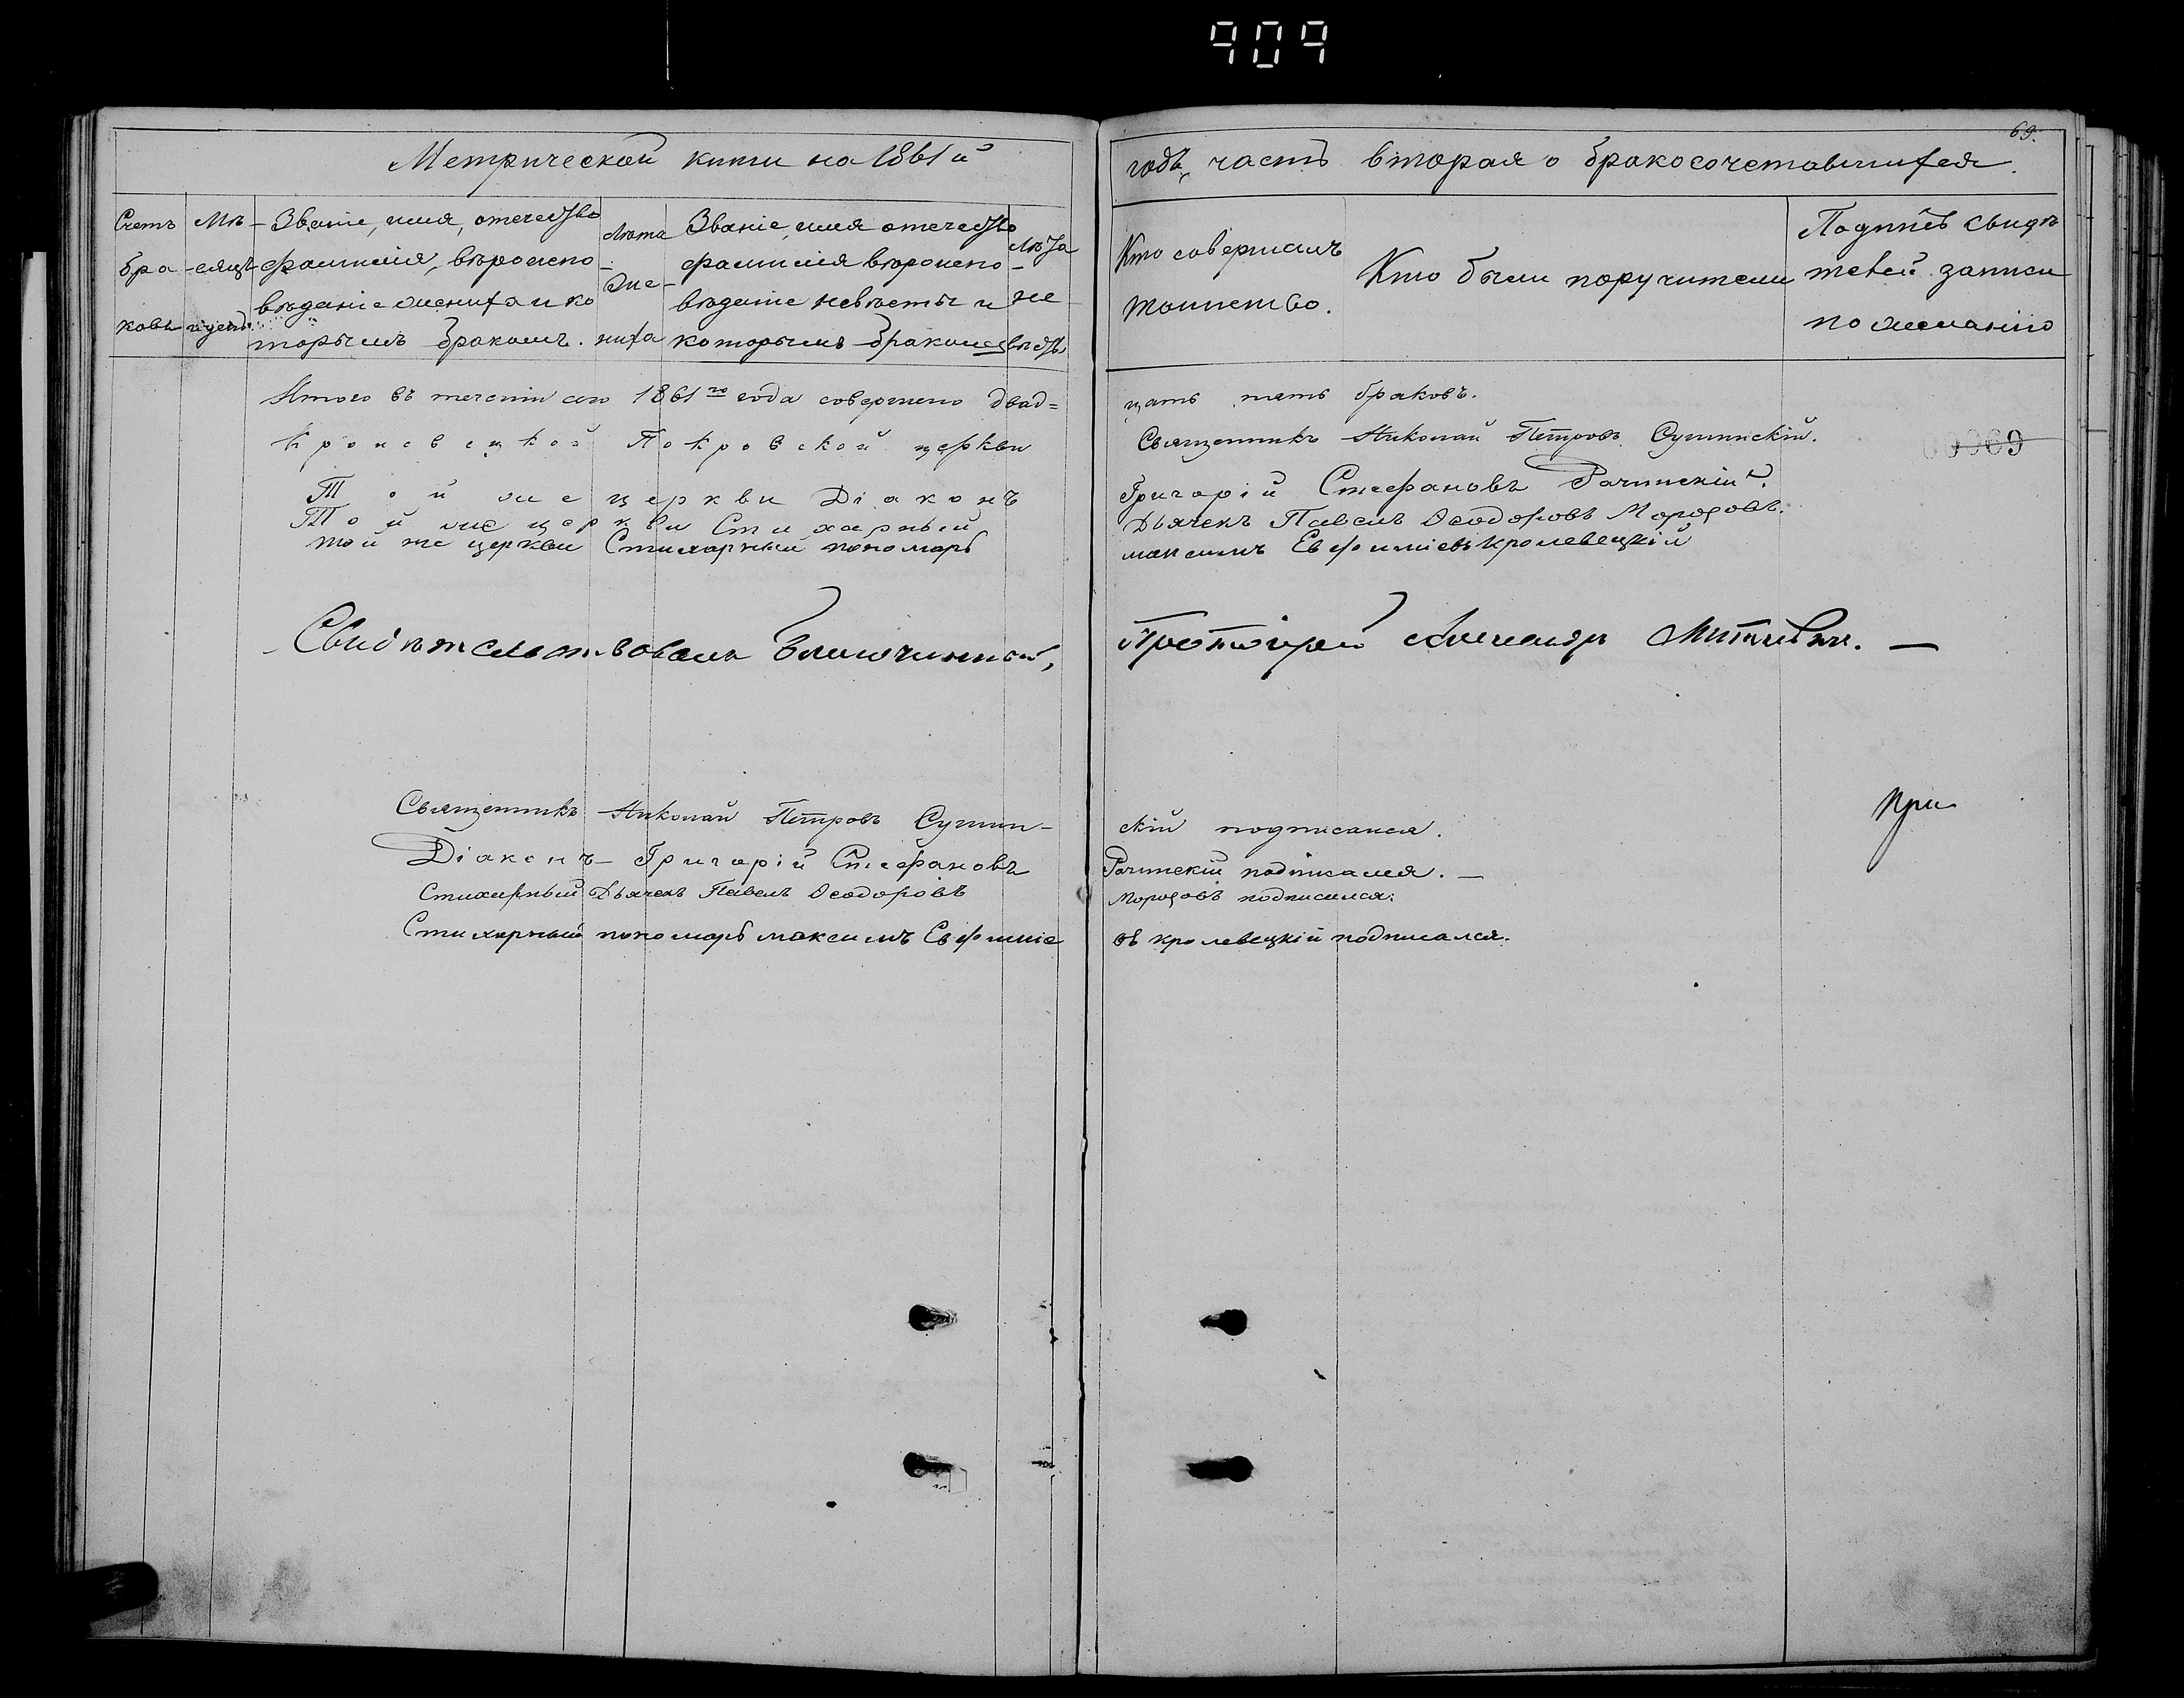 909
69.
Метрической книги на 1861й годъ, часть вторая о бракосочетавшихся.
Счетъ браковъ
Мѣсяцъ и день
Званіе, имя, отечество фамилія, вѣроисповѣданіе жениха и которымъ бракомъ.
Лѣта жениха
Званіе, имя отечество фамилія вѣроисповѣданіе невѣсты и которымъ бракомъ
Лѣта невѣсты
Кто совершалъ таинство.
Кто были поручители
Подпись свидѣтелей записи по желанію
Итого въ теченіи сего 1861го года совершено двад=цать пять браковъ.
Кролевецкой Покровской церкви Священникъ Николай Петровъ Сушинскій.
00069
Той же церкви Діаконъ Григорій Стефановъ Рачинскій.
Той же церкви Стихарный Дьячекъ Павелъ Ѳеодоровъ Морозовъ.
той же церкви Стихарный пономарь максимъ Евфиміевъ кролевецкій
Свидѣтельствовалъ Благочинный, Протоіерей Александръ —
Священникъ Николай Петровъ Сушин-скій подписался.
При
Діаконъ Григорій Стефановъ Рачинскій подписался. —
Стихарный Дьячекъ Павелъ Ѳеодоровъ Морозовъ подписался.
Стихарный пономарь максимъ Евфиміевъ кролевецкій подписался.